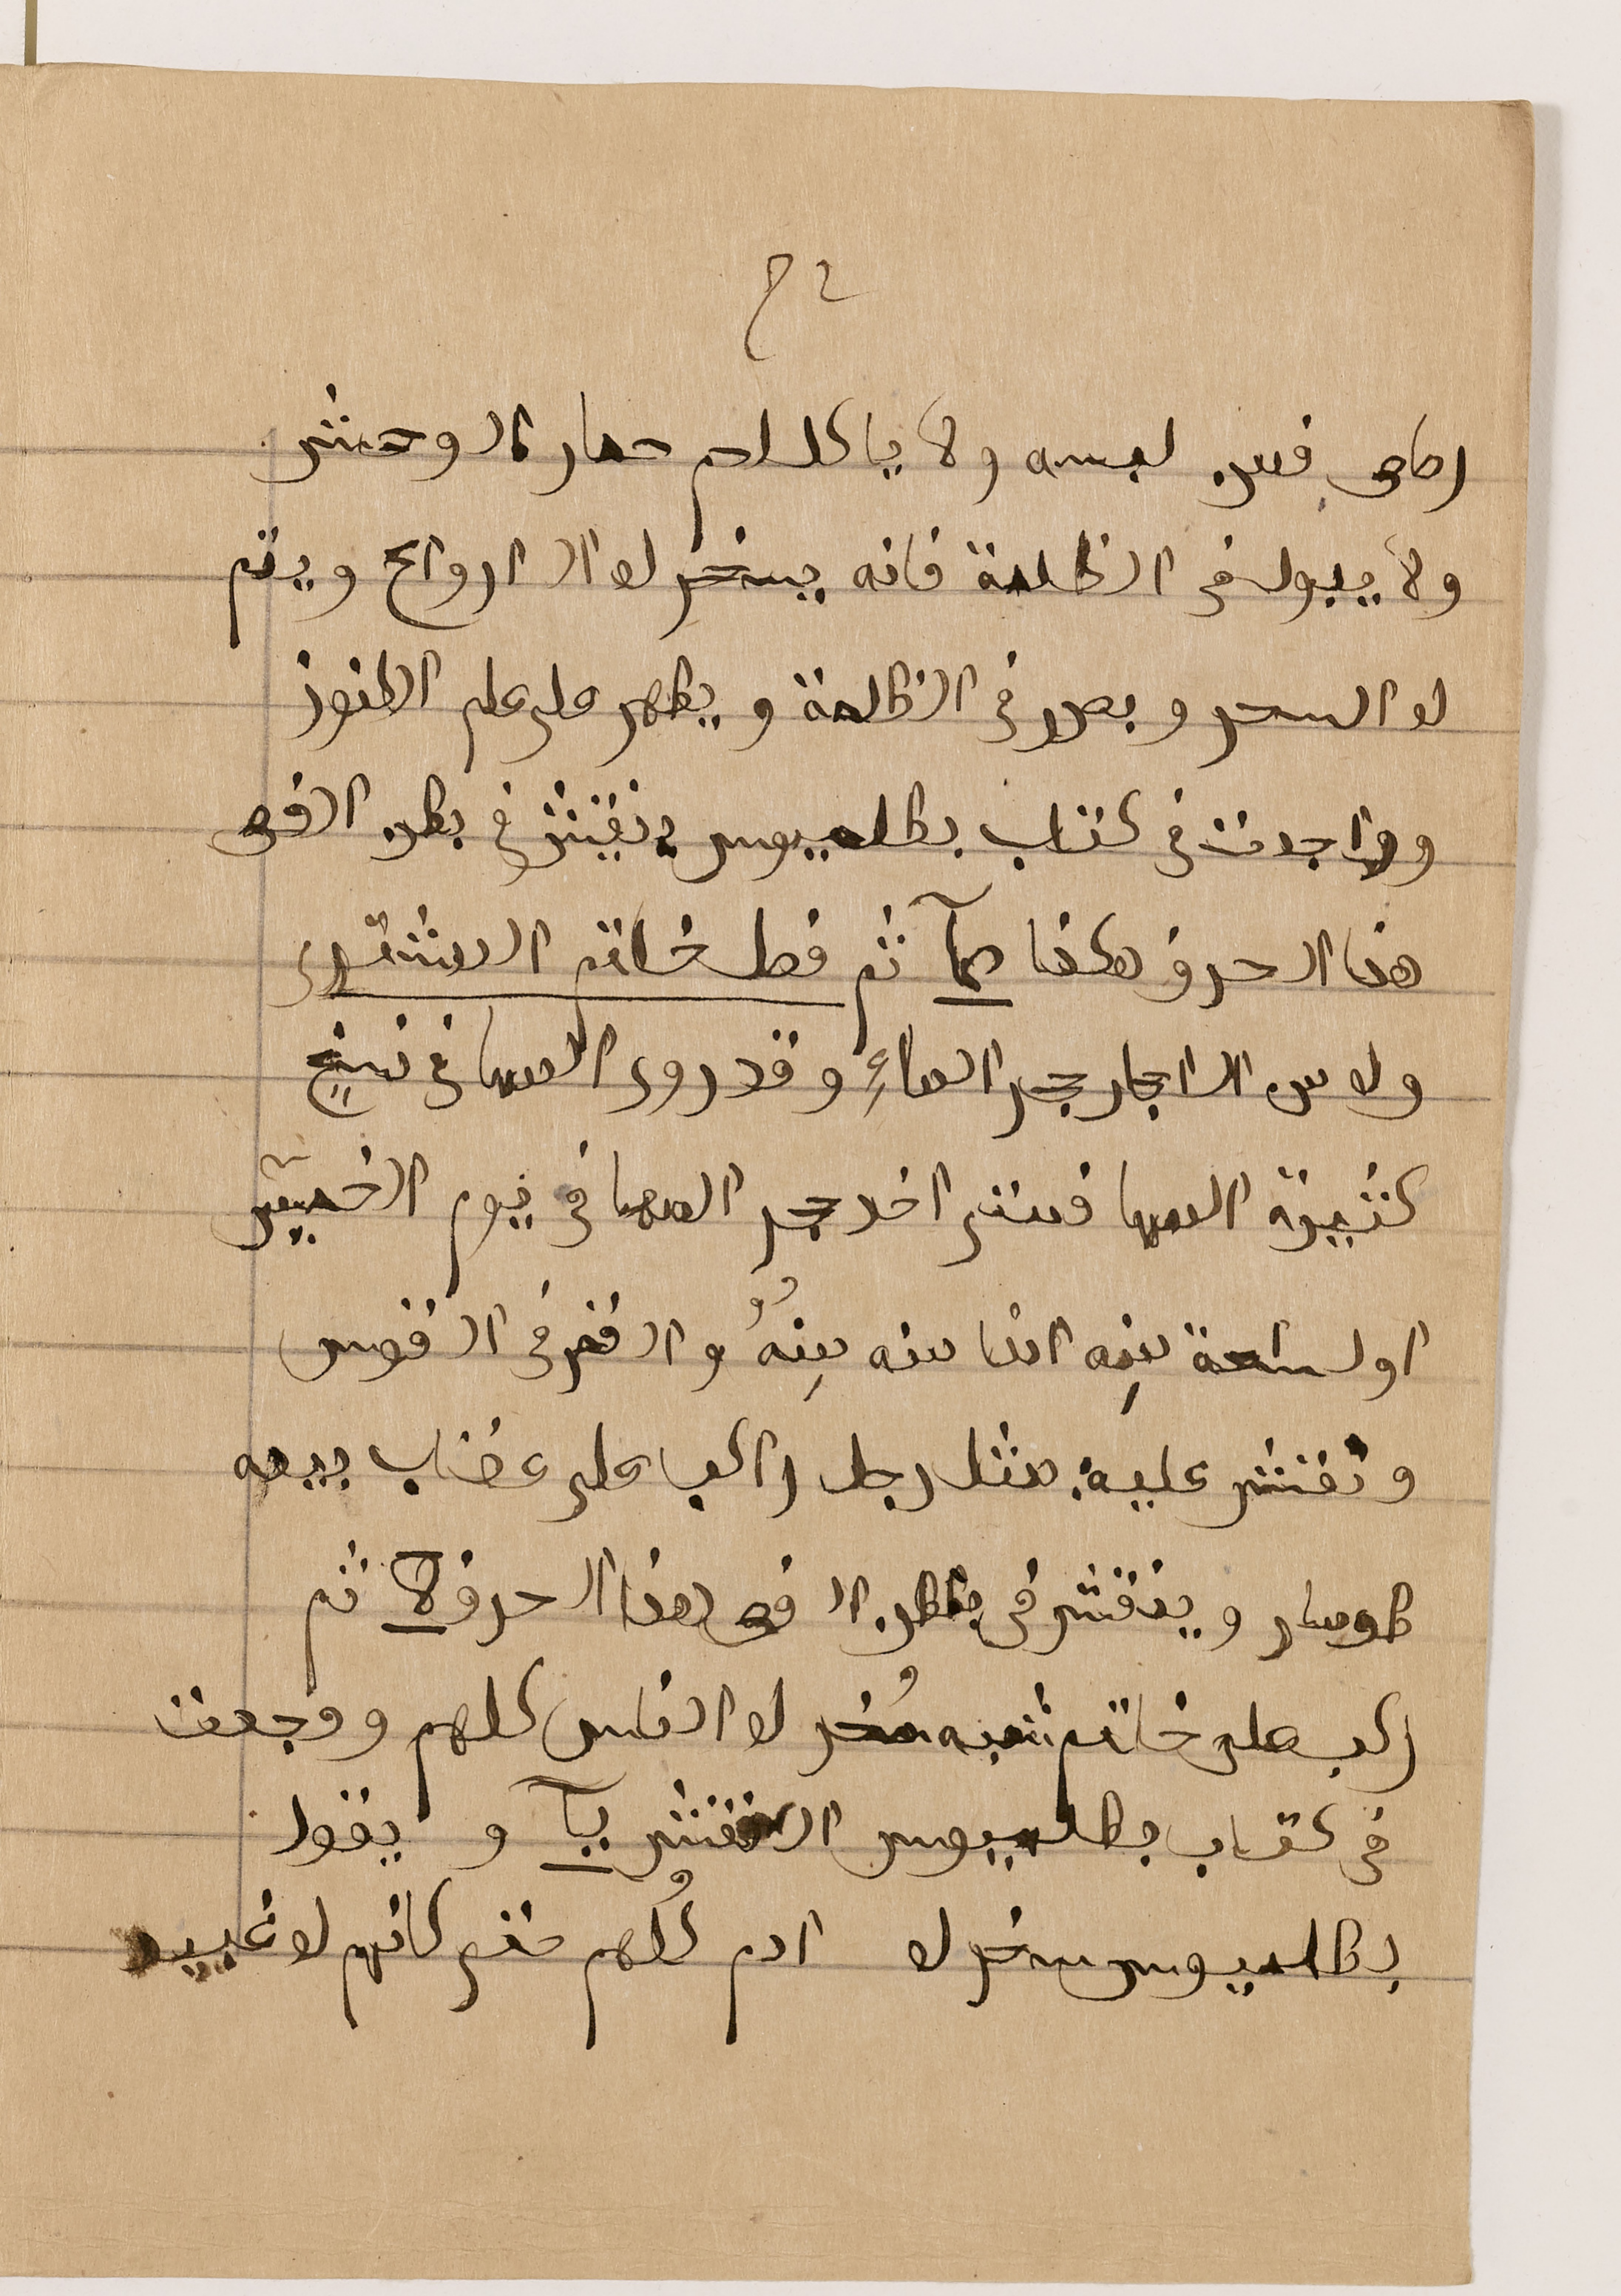 ٢٣
رصاص فمن لبسه ولا ياكل لحم حمار الوحش
ولا يبول فى الظلمة فانه يسخر له الارواح ويتم
له السحر و فى الظلمة و يظهر على علم الكنوز
و واجدت فى كتاب بطلميوس ينقش فى بطن الفص
هذا الحرف هكذا ثم فصل خاتم المشترى
وله من الاجار حجر المهاءِ و قد روى المها فى نسخ
كثيرة المها فمتى اخد حجر المها فى يوم الخميس
اول ساعة منه والقمر فى القوس
و تنقش عليه مثل رجل راكب على عقاب بيده
طومار و ينقش فى بطن الفص هذا الحرف لا ثم
ركب على خاتم شبه سُخر له الناس كلهم و وجدت
فى كتاب بطلميوس النقش يآ و يقول
بطلميوس سخر له ادم كُلهم حتى كانهم له عبيد